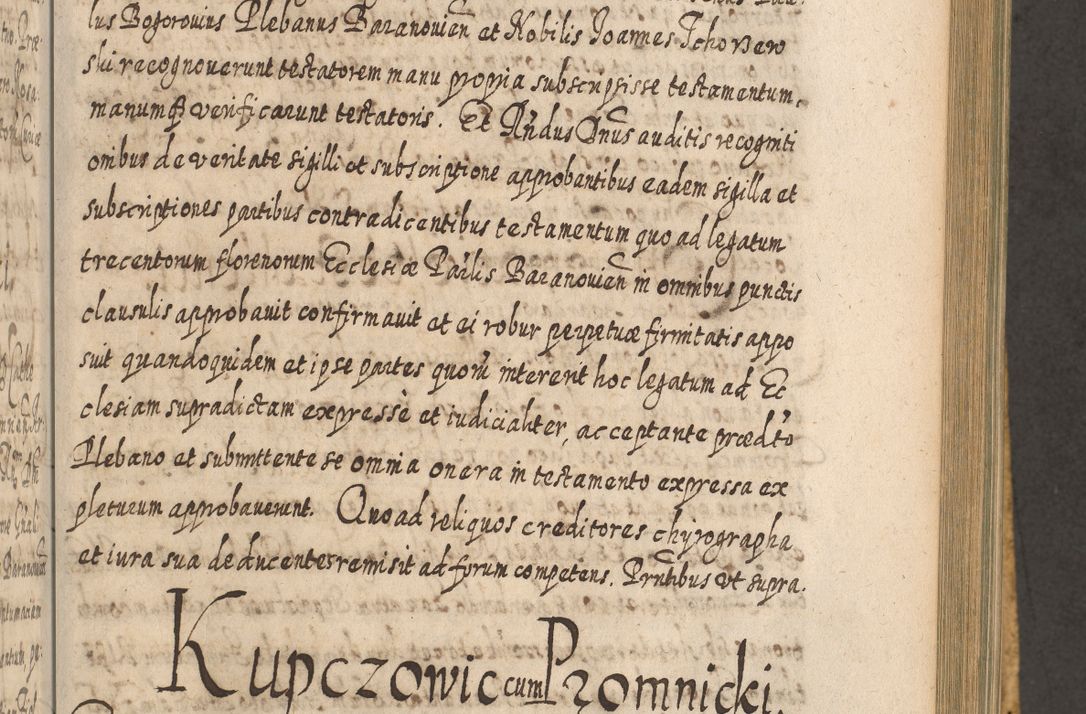 lus Bogorovius Plebanus Baranovien et Nobilis Joannes Tchorzew
ski recognoverunt testatorem manu propria subscripsisse testamentum,
manumq verificarunt testatoris. Et Rndus Dnus auditis recogniti
onibus de veritate sigilli et subscriptione approbantibus eadem sigilla et
subscriptiones partibus contradicentibus testamentum quo ad legatum
trecentorum florenorum Ecclesiæ Parlis Baranovien in omnibus punctis
clausulis approbavit confirmavit et ei robur perpetuæ firmitatis appo
suit quandoquidem et ipse partes quoru intererit hoc legatum ad Ec
clesiam supradictam expressè et iudicialiter, acceptante prædto
Plebano et submittente se omnia onera in testamento expressa ex
pleturum approbaverunt. Quo ad reliquos creditores chyrographa
et iura sua deducentes remisit ad forum competens. Prntibus ut supra.
Kupczowic cum Przomnicki.